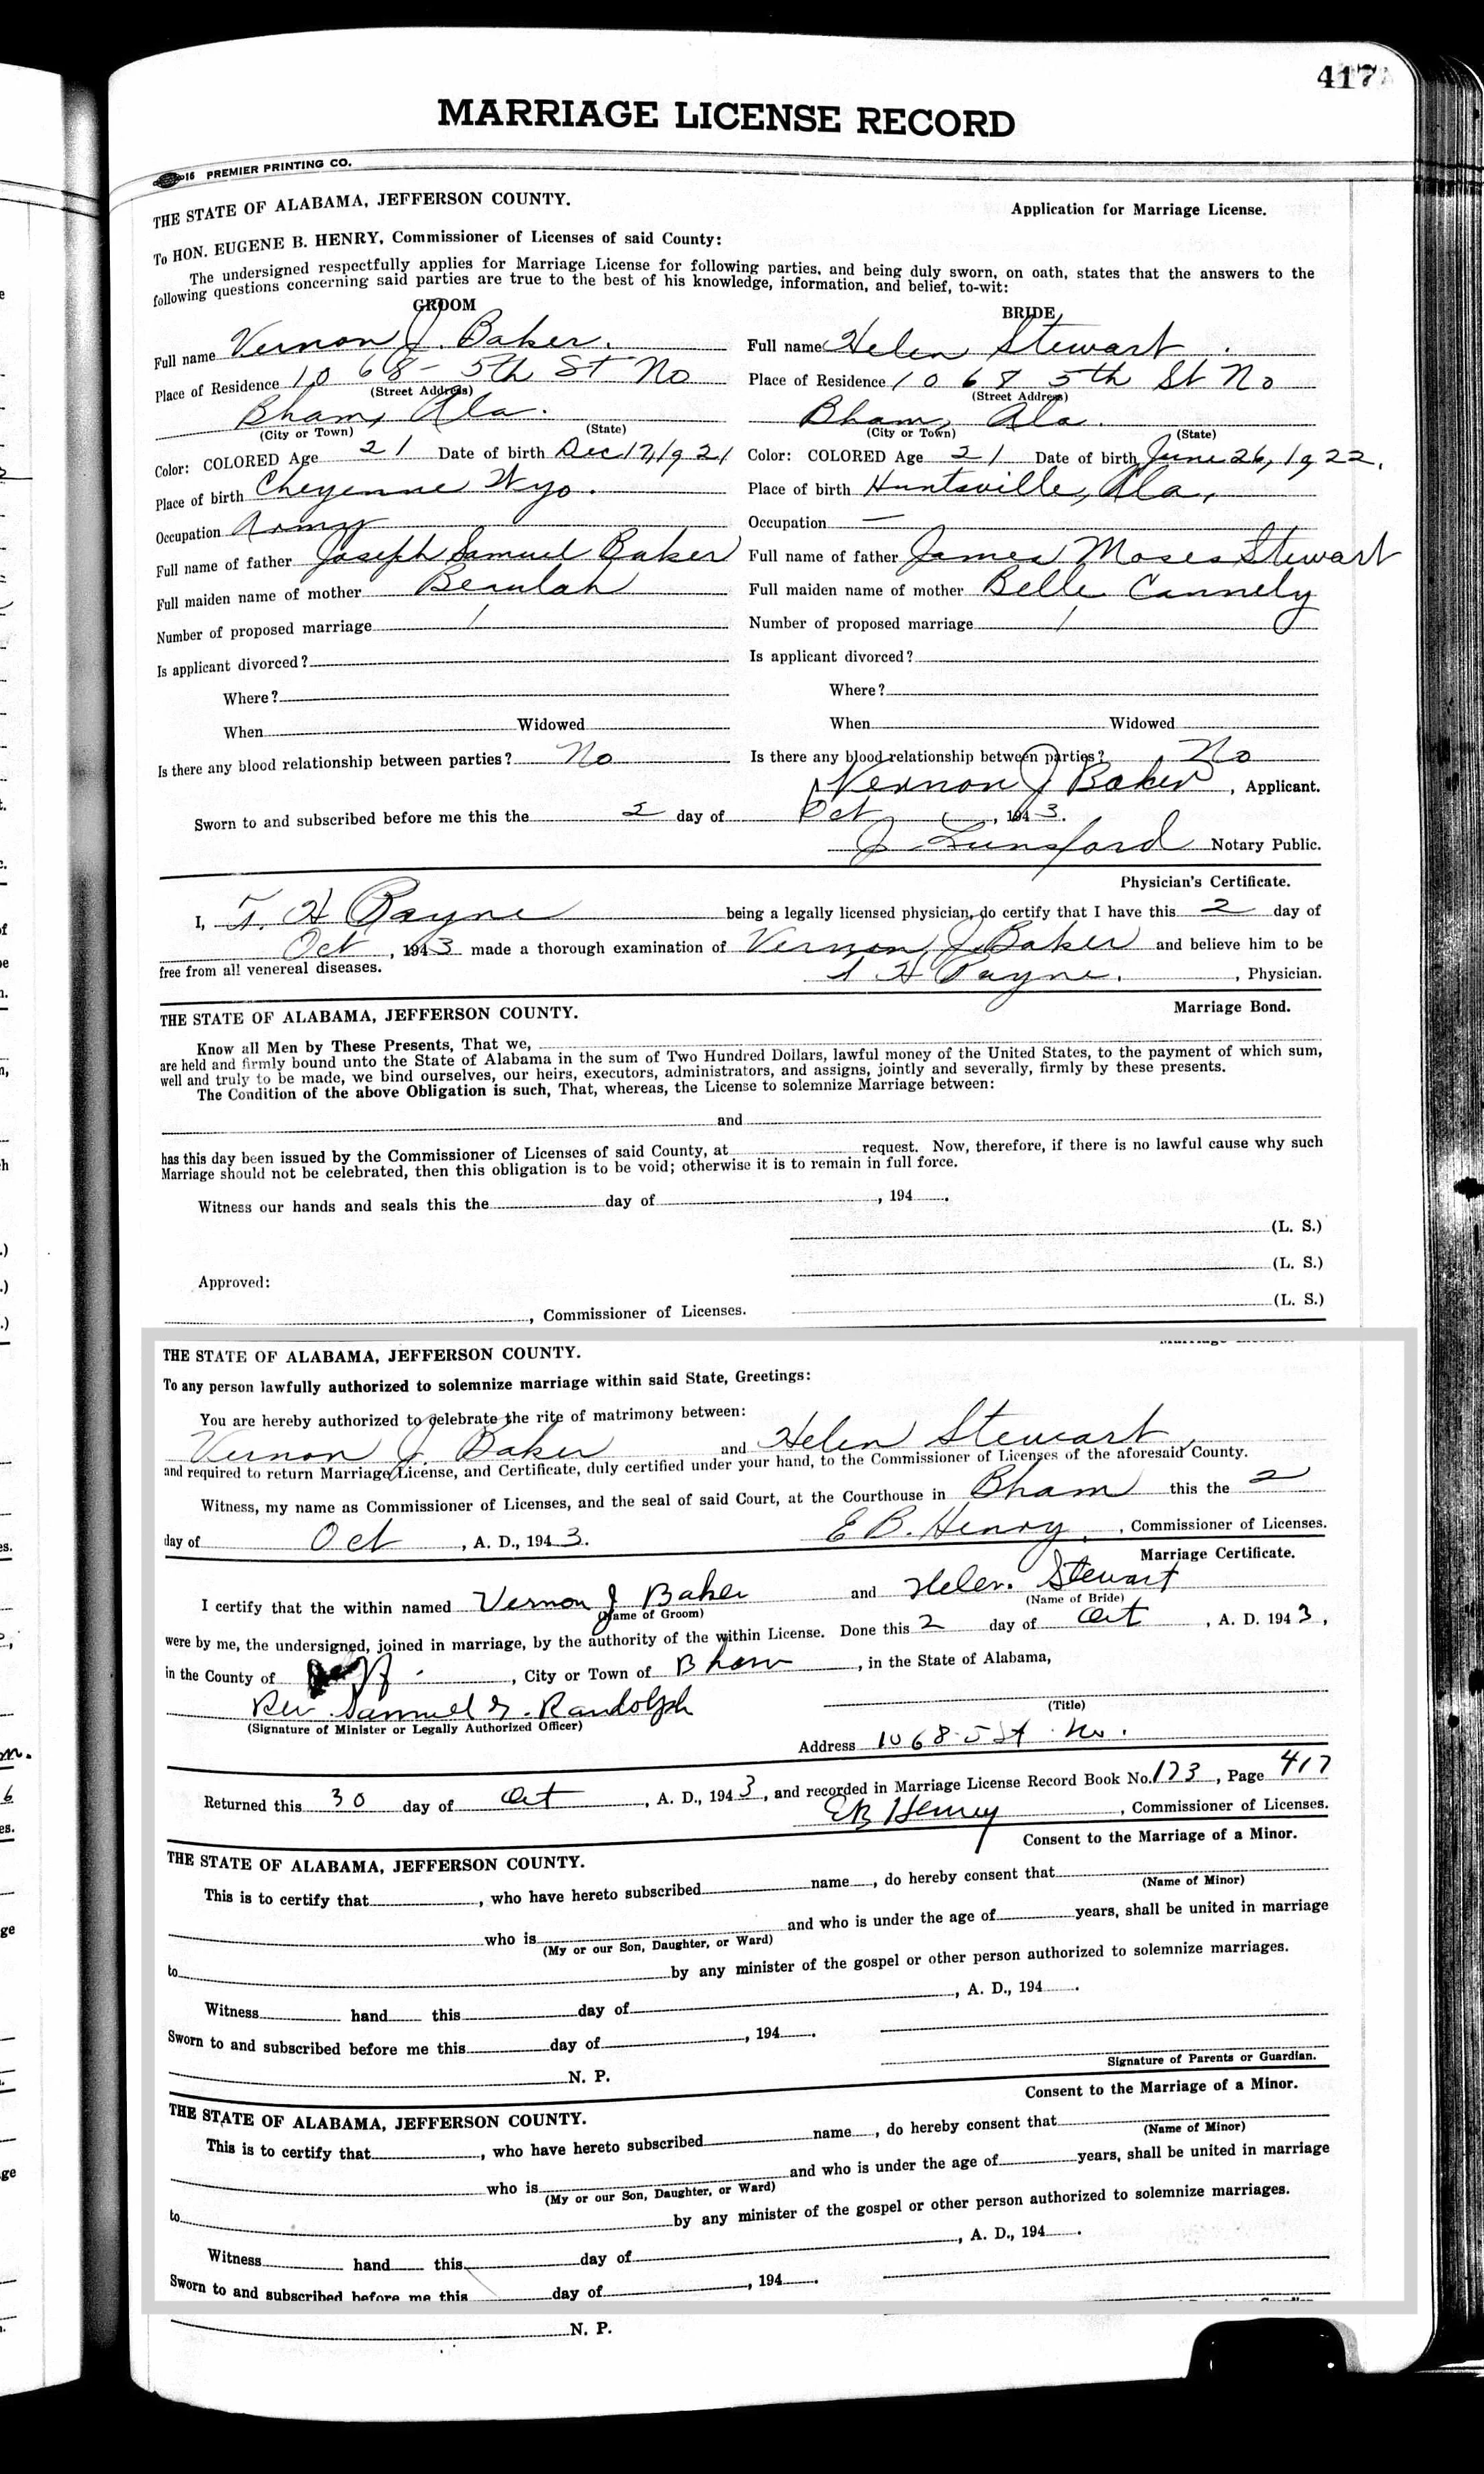 417
MARRIAGE LICENSE RECORD
16 PREMIER PRINTING CO.
THE STATE OF ALABAMA, JEFFERSON COUNTY.
Application for Marriage License.
To HON. EUGENE B. HENRY, Commissioner of Licenses of said County:
The undersigned respectfully applies for Marriage License for following parties, and being duly sworn, on oath, states that the answers to the
following questions concerning said parties are true to the best of his knowledge, information, and belief, to-wit:
GROOM BRIDE
Full name Vernon J. Baker. Full name Helen Stewart
Place of Residence 1068 - 5th St No Place of Residence 1068 5th St No
(Street Address) (Street Address)
Bham, Ala. Bham, Ala.
(City or Town) (State) (City or Town) (State)
Color: COLORED Age 21 Date of birth Dec 17, 1921 Color: COLORED Age 21 Date of birth June 26, 1922.
Place of birth Cheyenne Wyo. Place of birth Huntsville, Ala,
Occupation Army Occupation —
Full name of father Joseph Samuel Baker Full name of father James Moses Stewart
Full maiden name of mother Beaulah Full maiden name of mother Belle Cannely
Number of proposed marriage 1 Number of proposed marriage 1
Is applicant divorced? Is applicant divorced?
Where? Where?
When Widowed When Widowed
Is there any blood relationship between parties? No Is there any blood relationship between parties? No
Vernon J Baker, Applicant.
Sworn to and subscribed before me this the 2 day of Oct, 1943.
J Lunsford Notary Public.
Physician's Certificate.
I, T. H Payne being a legally licensed physician, do certify that I have this 2 day of
Oct, 1943 made a thorough examination of Vernon J Baker and believe him to be
free from all venereal diseases.
T H Payne., Physician.
THE STATE OF ALABAMA, JEFFERSON COUNTY.
Marriage Bond.
Know all Men by These Presents, That we,
are held and firmly bound unto the State of Alabama in the sum of Two Hundred Dollars, lawful money of the United States, to the payment of which sum,
well and truly to be made, we bind ourselves, our heirs, executors, administrators, and assigns, jointly and severally, firmly by these presents.
The Condition of the above Obligation is such, That, whereas, the License to solemnize Marriage between:
and
has this day been issued by the Commissioner of Licenses of said County, at request. Now, therefore, if there is no lawful cause why such
Marriage should not be celebrated, then this obligation is to be void; otherwise it is to remain in full force.
Witness our hands and seals this the day of , 194 .
(L. S.)
(L. S.)
Approved:
(L. S.)
, Commissioner of Licenses.
THE STATE OF ALABAMA, JEFFERSON COUNTY.
To any person lawfully authorized to solemnize marriage within said State, Greetings:
You are hereby authorized to celebrate the rite of matrimony between:
Vernon J. Baker and Helen Stewart,
and required to return Marriage License, and Certificate, duly certified under your hand, to the Commissioner of Licenses of the aforesaid County.
Witness, my name as Commissioner of Licenses, and the seal of said Court, at the Courthouse in Bham this the 2
day of Oct, A. D., 1943. E B. Henry, Commissioner of Licenses.
Marriage Certificate.
I certify that the within named Vernon J Baker and Helen Stewart
(Name of Groom) (Name of Bride)
were by me, the undersigned, joined in marriage, by the authority of the within License. Done this 2 day of Oct, A. D. 1943,
in the County of Jeff, City or Town of Bham, in the State of Alabama,
Rev. Samuel Randolph
(Signature of Minister or Legally Authorized Officer) (Title)
Address 1068-5 St No.
Returned this 30 day of Oct, A. D., 1943, and recorded in Marriage License Record Book No. 173, Page 417
EB Henry, Commissioner of Licenses.
Consent to the Marriage of a Minor.
THE STATE OF ALABAMA, JEFFERSON COUNTY.
This is to certify that , who have hereto subscribed name , do hereby consent that
(Name of Minor)
who is and who is under the age of years, shall be united in marriage
(My or our Son, Daughter, or Ward)
to by any minister of the gospel or other person authorized to solemnize marriages.
Witness hand this day of , A. D., 194 .
Sworn to and subscribed before me this day of , 194 .
Signature of Parents or Guardian.
N. P.
Consent to the Marriage of a Minor.
THE STATE OF ALABAMA, JEFFERSON COUNTY.
This is to certify that , who have hereto subscribed name , do hereby consent that
(Name of Minor)
who is and who is under the age of years, shall be united in marriage
(My or our Son, Daughter, or Ward)
to by any minister of the gospel or other person authorized to solemnize marriages.
Witness hand this day of , A. D., 194 .
Sworn to and subscribed before me this day of , 194 .
N. P.